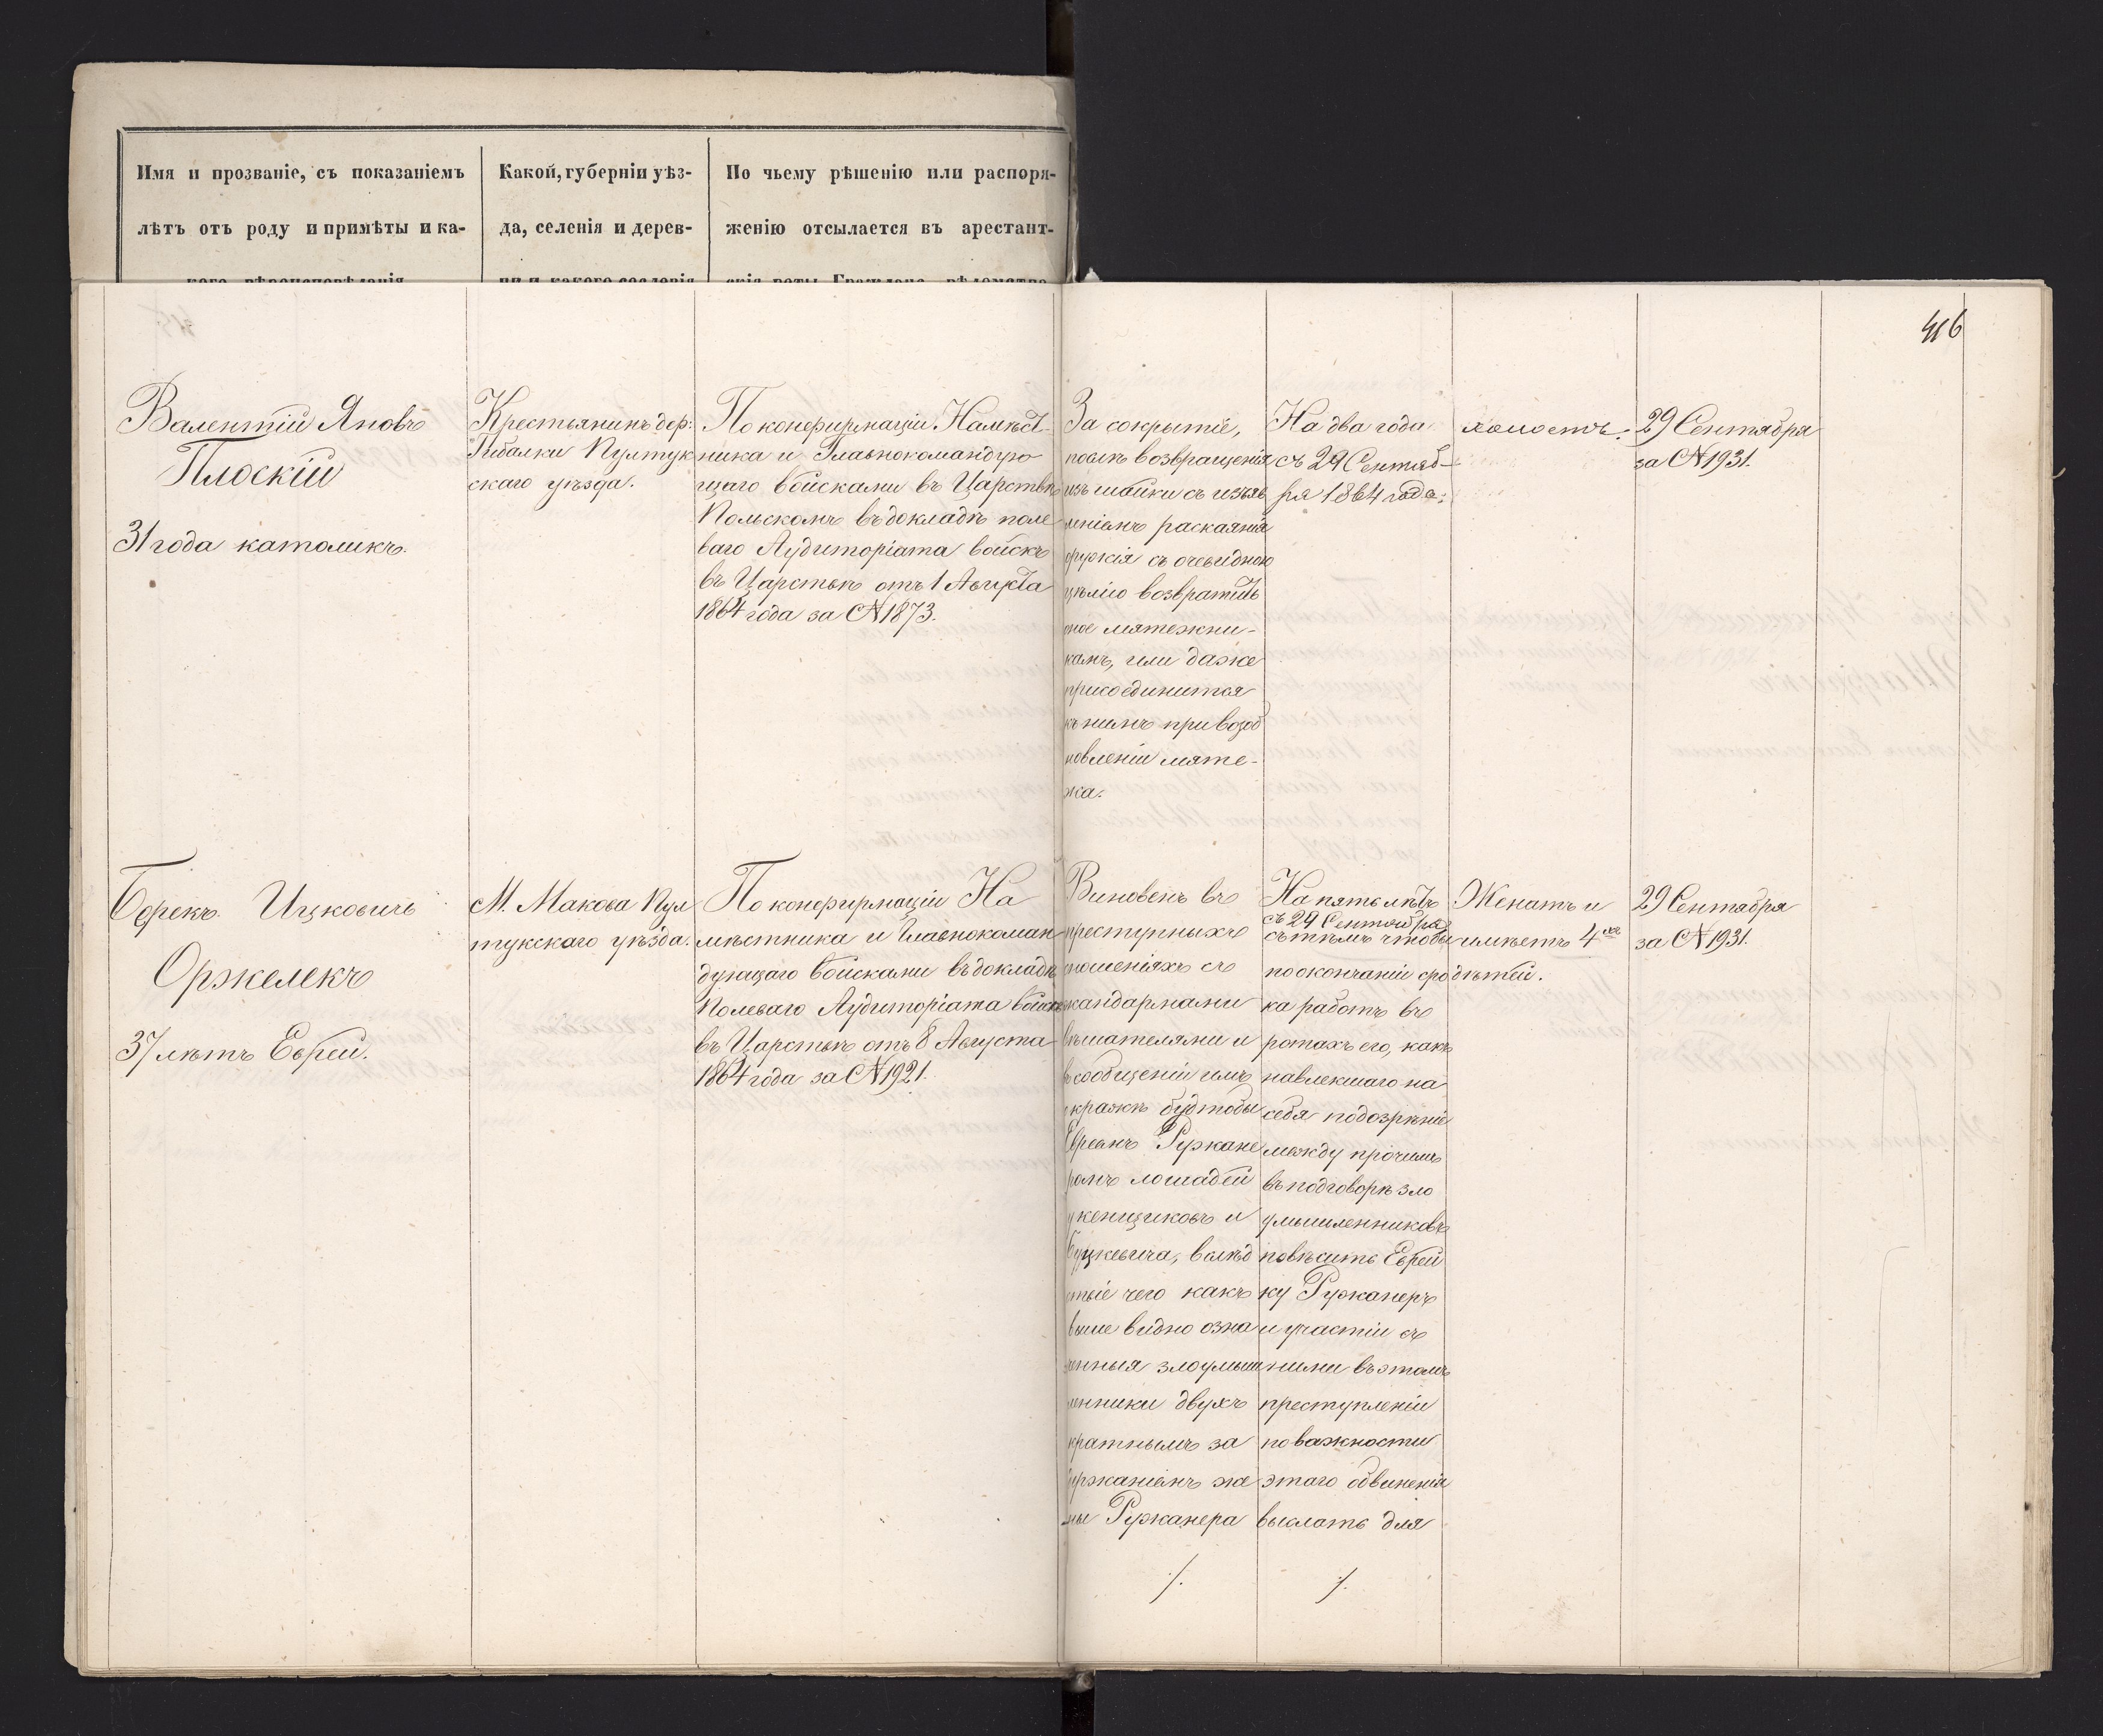 Имя и прозваніе, съ показаніемъ
лѣтъ отъ роду и примѣты и ка-
кого вѣроисповѣданія
Какой, губерніи уѣз-
да, селенія и дерев-
ни и какого сословія
По чьему рѣшенію или распоря-
женію отсылается въ арестант-
скія роты Гражданс. вѣдомства
416
Валентій Яновъ
Плоскій
31 года католикъ.
Крестьянинъ дер:
Гибалки Пултук
скаго уѣзда.
По конфирмаціи Намѣст-
ника и Главнокомандую
щаго войсками въ Царствѣ
Польскомъ въ докладѣ поле
ваго Аудиторіата войскъ
въ Царствѣ отъ 1 Августа
1864 года за № 1873.
За сокрытіе,
послѣ возвращенія
изъ шайки съ изъяв
леніемъ раскаянія
оружія съ очевидною
цѣлію возвратить
оное мятежни-
камъ, или даже
присоединится
къ нимъ при возоб
новленіи мяте-
жа.
На два года
съ 29 Сентяб-
ря 1864 года.
холостъ.
29 Сентября
за № 1931.
Берекъ Ицковичъ
Оржелекъ
37 лѣтъ Еврей.
М. Макова Пул
тукскаго уѣзда.
По конфирмаціи На
мѣстника и Главнокоман
дующаго войсками въ докладѣ
Полеваго Аудиторіата войскъ
въ Царствѣ отъ 8 Августа
1864 года за № 1921.
Виновенъ въ
преступныхъ
сношеніяхъ съ
жандармами
вѣшателями и
въ сообщеніи имъ
о кражѣ будтобы
Евреемъ Ружане
ромъ лошадей
у женщиковъ и
Буцкевича, вслѣд
ствіе чего какъ
выше видно озна
ченныя злоумыш
ленники двухъ
кратнымъ за
держаніемъ же
ны Ружанера
/.
На пять лѣтъ
съ 29 Сентября
съ тѣмъ чтобы
по окончаніи сро
ка работъ въ
ротахъ его, какъ
навлекшаго на
себя подозрѣніе
между прочимъ
въ подговорѣ зло
умышленниковъ
повѣсить Еврей
ку Ружанеръ
и участіи съ
ними въ этомъ
преступленіи
по важности
этаго обвиненія
выслать для
/.
Женатъ и
имѣетъ 4хъ
дѣтей.
29 Сентября
за № 1931.